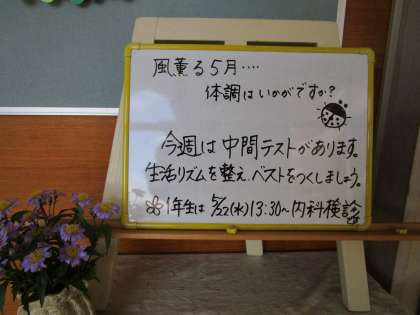 風薫る5月‥‥
体調はいかがですか?
今週は中間テストがあります。
生活リズムを整え、ベストをつくしましょう。
1年生は 5/22(水)13:30~内科検診